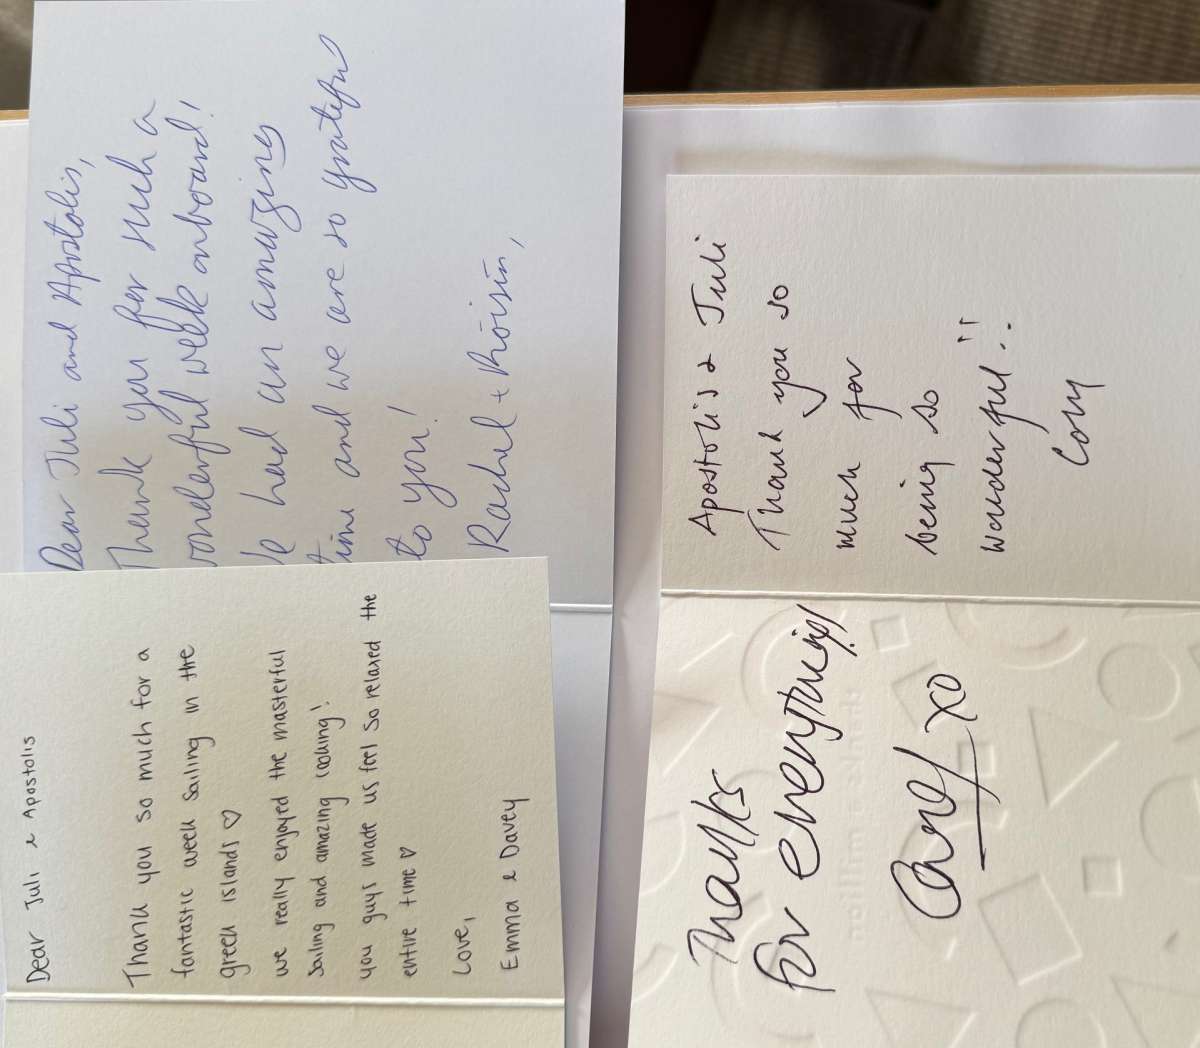 Dear Juli and Apostolis,
Thank you for such a
wonderful week onboard!
We had an amazing
time and we are so grateful
to you!
Rachel + Róisín,
Dear Juli & Apostolis
Thank you so much for a
fantastic week sailing in the
greek islands ♡
we really enjoyed the masterful
sailing and amazing cooking!
you guys made us feel so relaxed the
entire time ♡
Love,
Emma & Davey
Apostolis & Juli
Thank you so
much for
being so
wonderful!!
Thanks
for everything!
xo